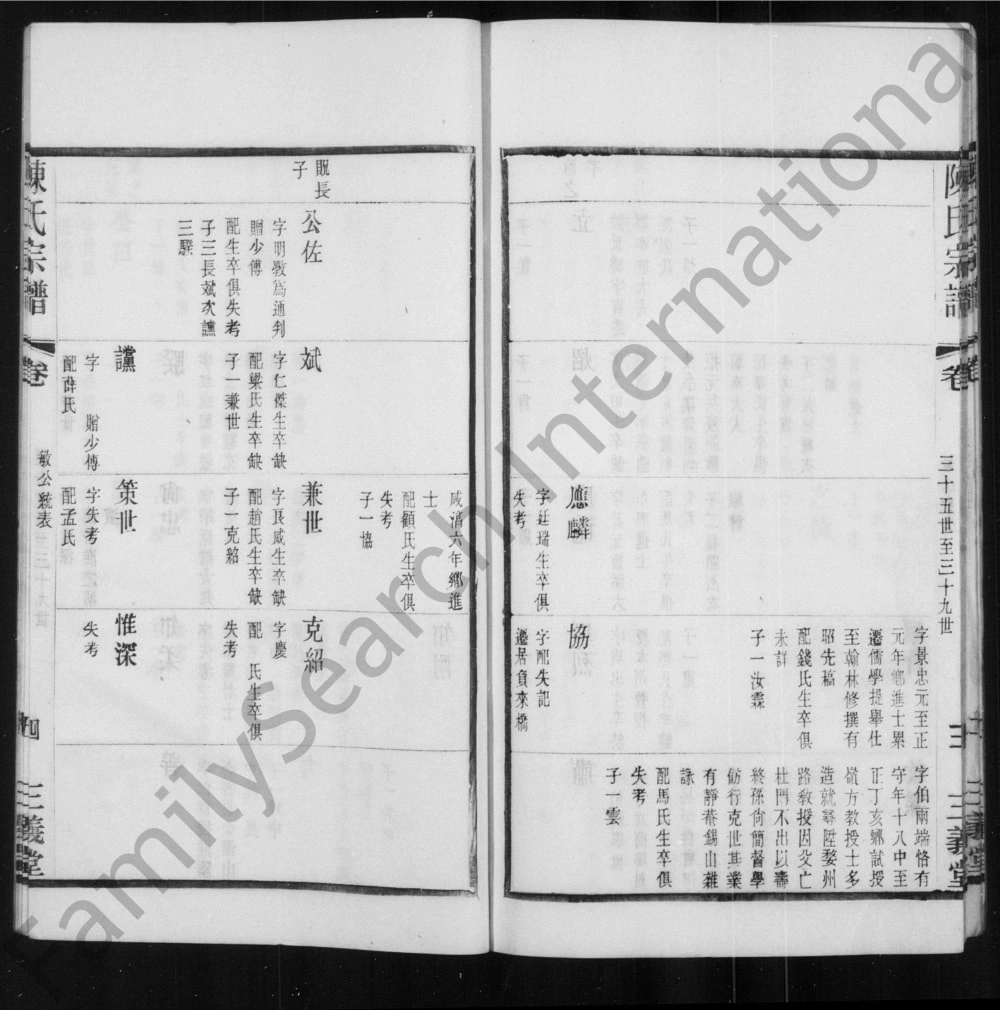 陳氏宗譜
卷
三十五世至三十九世
三義堂
字景忠元至正
元年鄉進士累
遷儒學提舉仕
至翰林修撰有
昭先稿
配錢氏生卒俱
未詳
子一汝霖
字伯雨端恪有
守年十八中至
正丁亥鄉試授
嶺方教授士多
造就尋陞婺州
路教授因父亡
杜門不出以壽
終孫尚簡督學
倣行克世其業
有靜菴錫山雜
詠
配馬氏生卒俱
失考
子一雲
應麟
字廷瑞生卒俱
失考
協
字配失記
遷居負來橋
咸淳六年鄉進
士
配顧氏生卒俱
失考
子一協
長
子
公佐
字明敎爲通判
贈少傅
配生卒俱失考
子三長斌次讜
三騤
斌
字仁傑生卒缺
配梁氏生卒缺
子一兼世
兼世
字良咸生卒缺
配趙氏生卒缺
子一克紹
克紹
字慶
配 氏生卒俱
失考
讜
字 贈少傅
配薛氏
策世
字失考
配孟氏
惟深
失考
陳氏宗譜
卷
敏公統表
四
三義堂
FamilySearch International